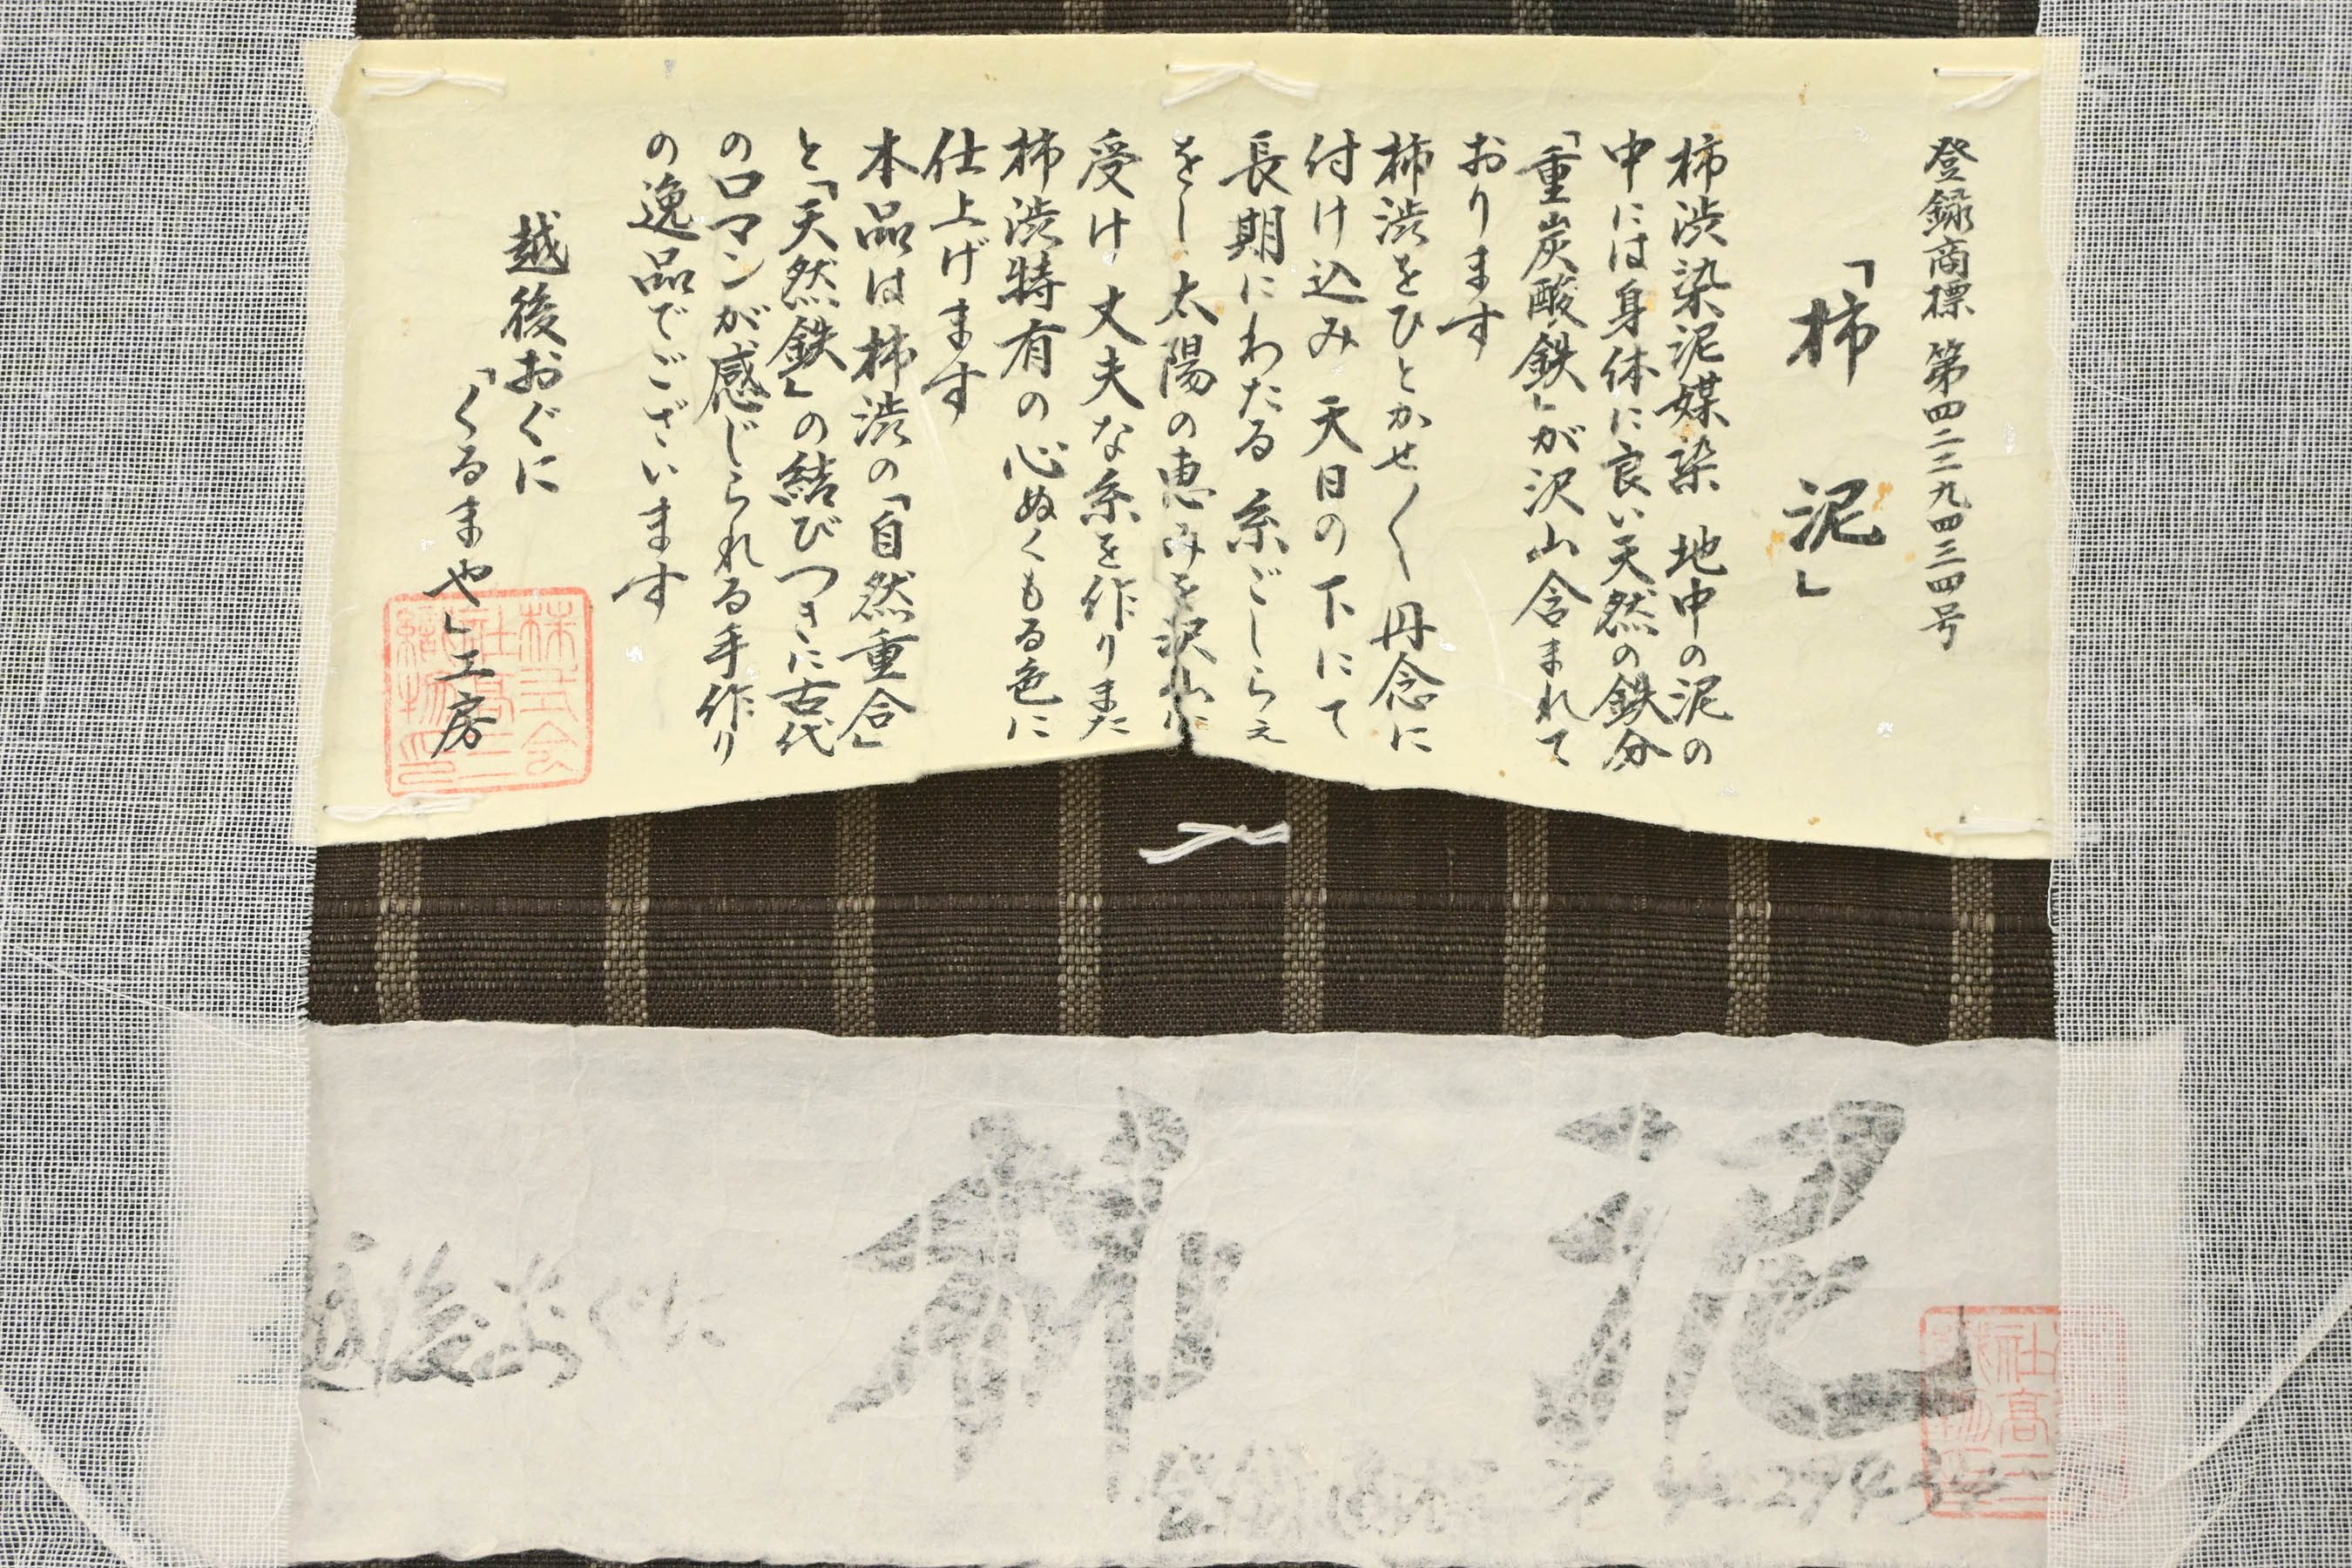 登録商標 第四二二九四三四号
「柿 泥」
柿渋染泥媒染 地中の泥の
中には身体に良い天然の鉄分
「重炭酸鉄」が沢山含まれて
おります
柿渋をひとかせ〱丹念に
付け込み 天日の下にて
長期にわたる 糸ごしらえ
をし 太陽の恵みを沢山に
受け 丈夫な糸を作りまた
柿渋特有の心ぬくもる色に
仕上げます
本品は柿渋の「自然重合」
と「天然鉄」の結びつきに古代
のロマンが感じられる手作り
の逸品でございます
越後おぐに
「くるまや」工房
株式会
社髙三
織物印
柿 泥
越後おぐに
登録商標 第4229434
社髙三
織物印